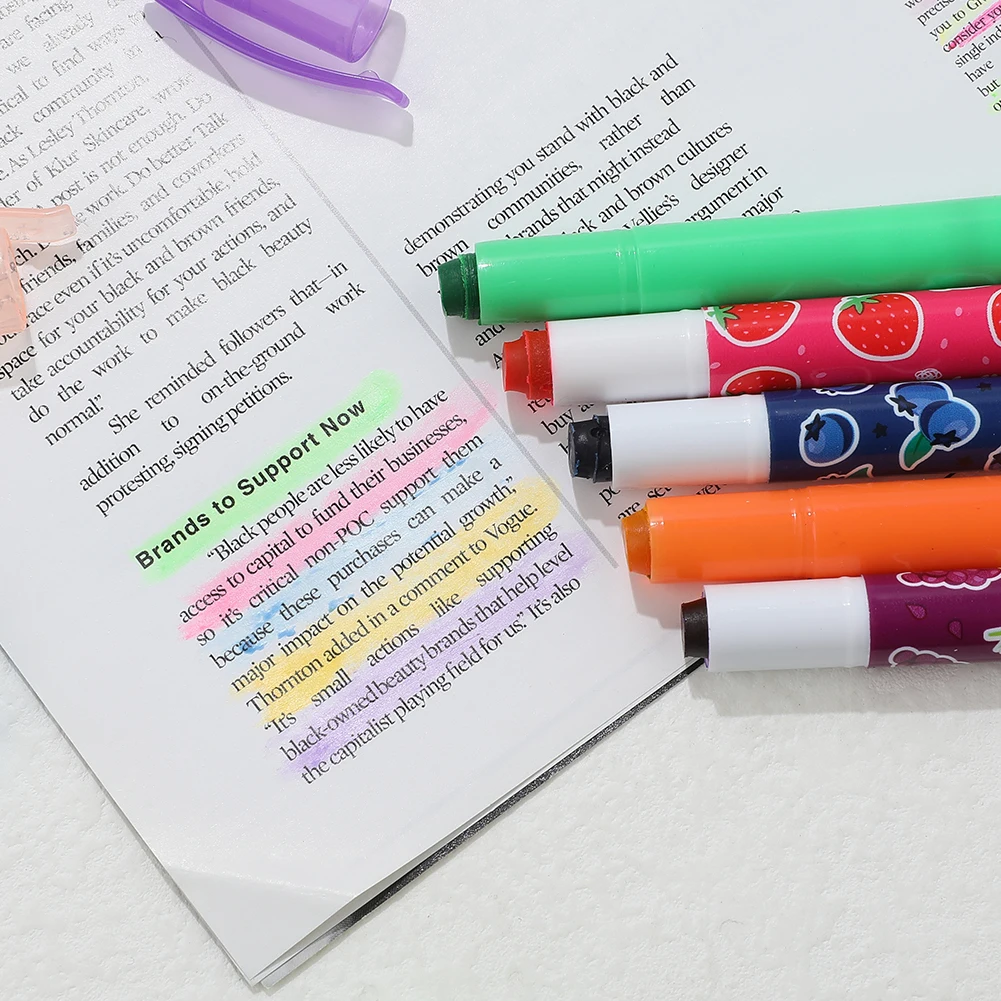 are facing already
we
tical to find ways
ack community in
As Lesley Thornton,
er of Klur Skincare, wrote
post is not enough. Do
work. Do better. Talk
friends, families, and coworkers
space even if it's uncomfortable, hold
space for your black and brown friends,
take accountability for your actions, and
do the work to make black beauty
normal."
She reminded followers that—in
addition to on-the-ground work
protesting, signing petitions.
Brands to Support Now
"Black people are less likely to have
access to capital to fund their businesses,
so it's critical non-POC support them
because these purchases can make a
major impact on the potential growth,"
Thornton added in a comment to Vogue.
"It's small actions like supporting
black-owned beauty brands that help level
the capitalist playing field for us." It's also
demonstrating you stand with black and
brown communities, rather than
brands that might instead
black and brown cultures
Vellies's designer
argument in
major
but
are set
precise
you to
consider you
single indi
have
but